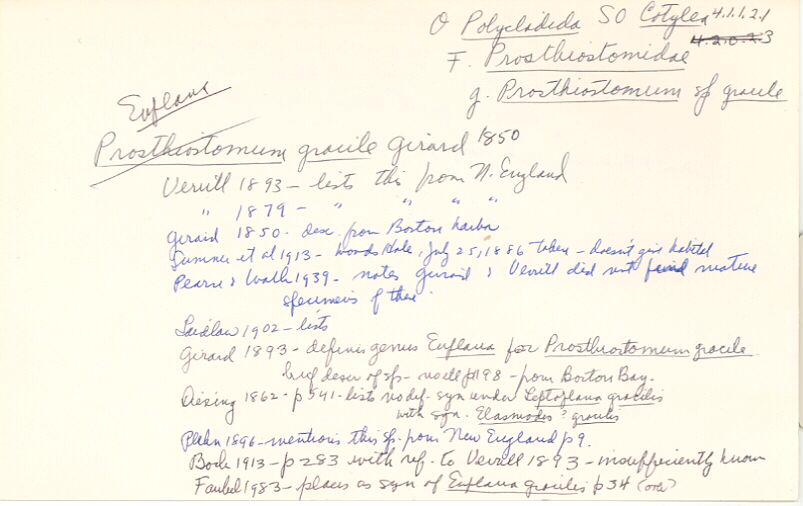 O Polycladida SO Cotylea 4.1.1.2.1
4.2.0.2.3
F. Prosthiostomidae
g. Prosthiostomum sp gracile
Euplana
Prosthiostomum gracile Girard 1850
Verrill 1893 - lists this from N. England
" 1879 - " " " "
Girard 1850 - desc. from Boston harbor
Sumner et al 1913 - Woods Hole, July 25, 1886 taken - doesn't give habitat
Pearse & Walk 1939 - notes Girard & Verrill did not find mature
specimens of these.
Laidlaw 1902 - lists
Girard 1893 - defines genus Euplana for Prosthiostomum gracile.
brief descr of sp - no ill p198 - from Boston Bay.
Diesing 1862 - p541 - lists no def. syn under Leptoplana gracilis
with syn. Elasmodes? gracilis
Plehn 1896 - mentions this sp. from New England p9.
Bock 1913 - p283 with ref. to Verrill 1893 - insufficiently known
Faubel 1983 - places as syn of Euplana gracilis p34 (over)